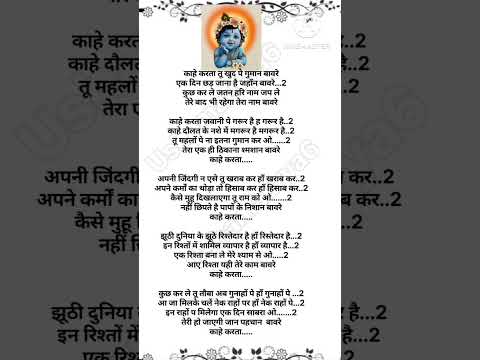 काहे करता तू खुद पे गुमान बावरे
एक दिन छड़ जाना है जहाँन बावरे...2
कुछ कर ले जतन हरि नाम जप ले
तेरे बाद भी रहेगा तेरा नाम बावरे
काहे करता जवानी पे गरूर है ह गरूर है..2
काहे दौलत के नशे में मगरूर है मगरूर है..2
तू महलों पे ना इतना गुमान कर ओ......2
तेरा एक ही ठिकाना श्मशान बावरे
काहे करता.....
अपनी जिंदगी न एसे तू खराब कर हाँ खराब कर..2
अपने कर्मों का थोड़ा तो हिसाब कर हाँ हिसाब कर..2
कैसे मुहू दिखलाएगा तू राम को ओ.......2
नहीं छिपते है पापों के निशान बावरे
काहे करता.....
झूठी दुनिया के झूठे रिश्तेदार है हाँ रिश्तेदार है...2
इन रिश्तों में शामिल व्यापार है हाँ व्यापार है...2
एक रिश्ता बना ले मेरे श्याम से ओ.....2
आए रिश्ता यही तेरे काम बावरे
काहे करता.....
कुछ कर ले तू तौबा अब गुनाहों पे हाँ गुनाहों पे ...2
आ जा मिलके चलें नेक राहों पर हाँ नेक राहों पे...2
इन राहों प मिलेगा एक दिन साबरा ओ.......2
तेरी हो जाएगी जान पहचान बावरे
काहे करता.....